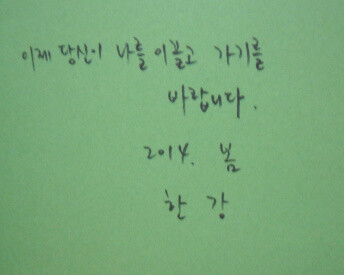 이제 당신이 나를 이끌고 가기를
바랍니다.
2014. 봄
한 강